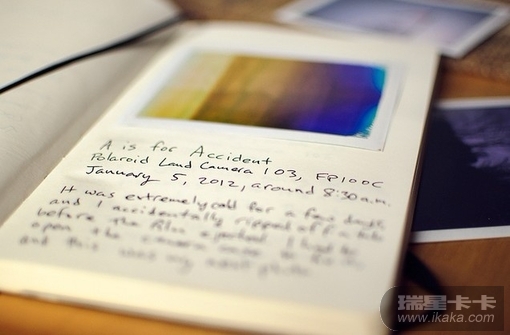 A is for Accident
Polaroid Land Camera 103, FP100C
January 5, 2012, around 8:30 a.m.
It was extremely cold for a few days
and I accidentally ripped off a tab
before the film ejected. I had to
open the camera
and this was my
瑞星卡卡
www.ikaka.com